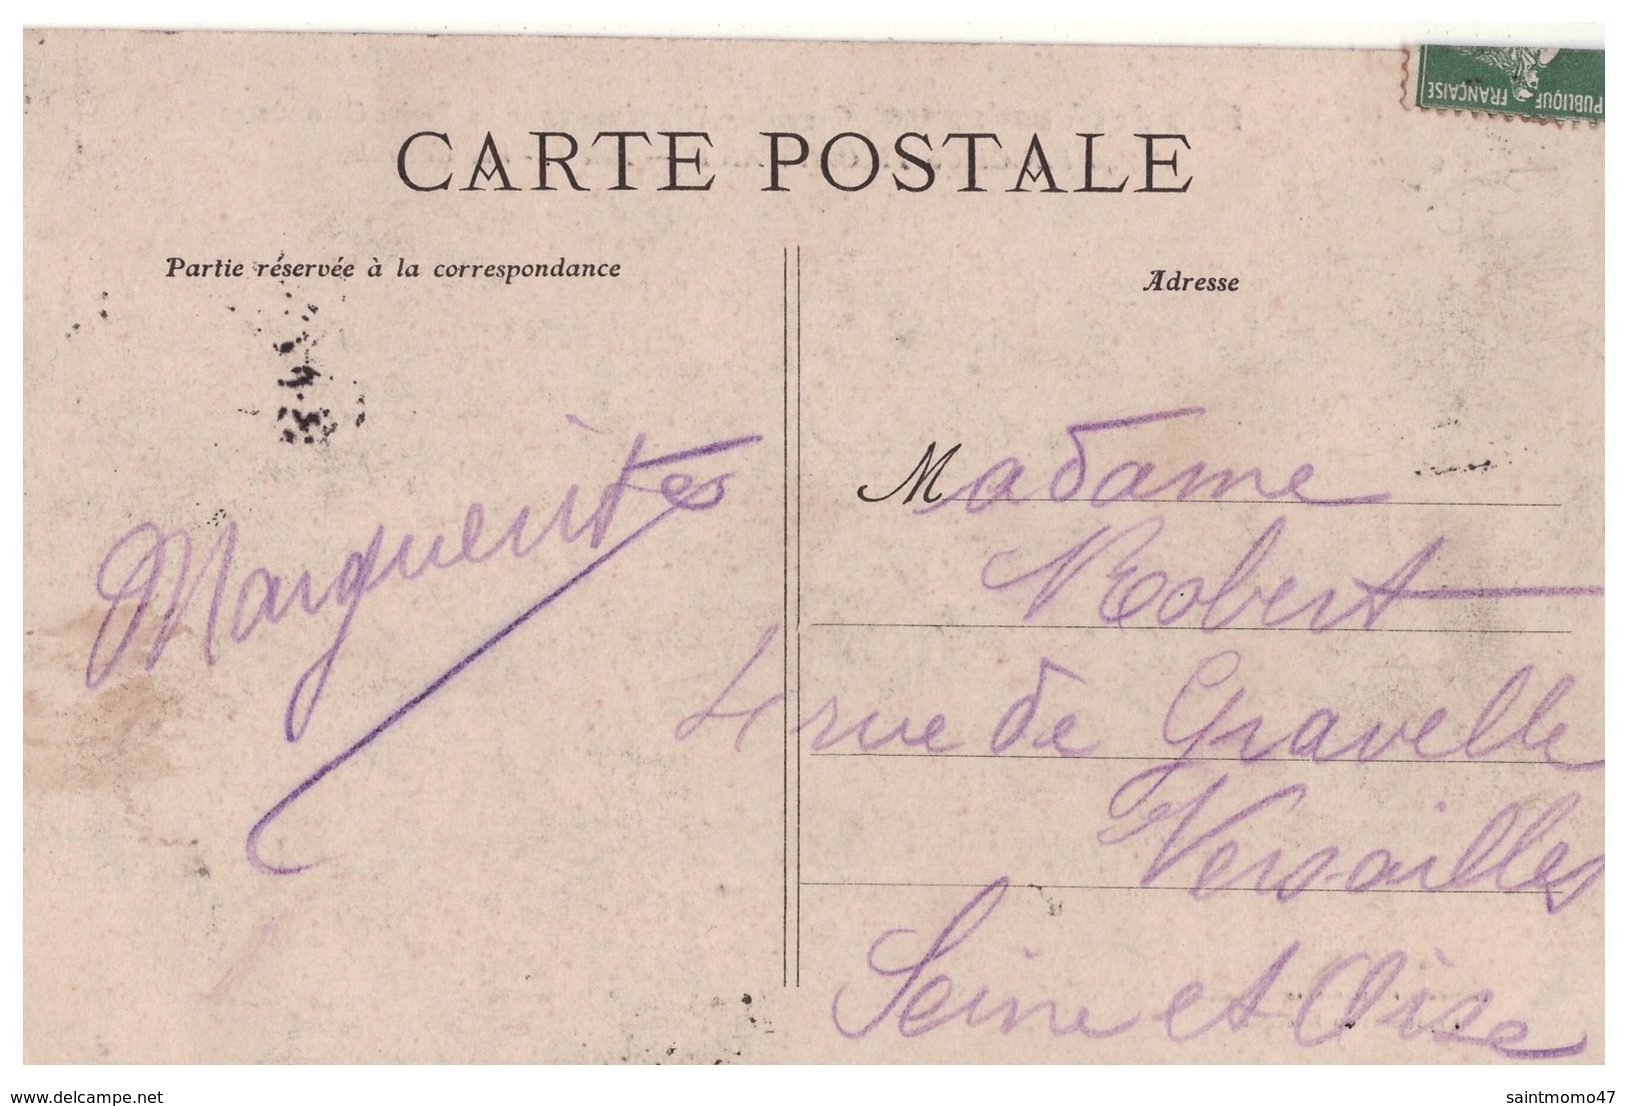 PUBLIQUE FRANÇAISE
CARTE POSTALE
Partie réservée à la correspondance
Adresse
Marguerites
Madame
Robert
4 rue de Gravelle
Versailles
Seine et Oise
www.delcampe.net
saintmomo47